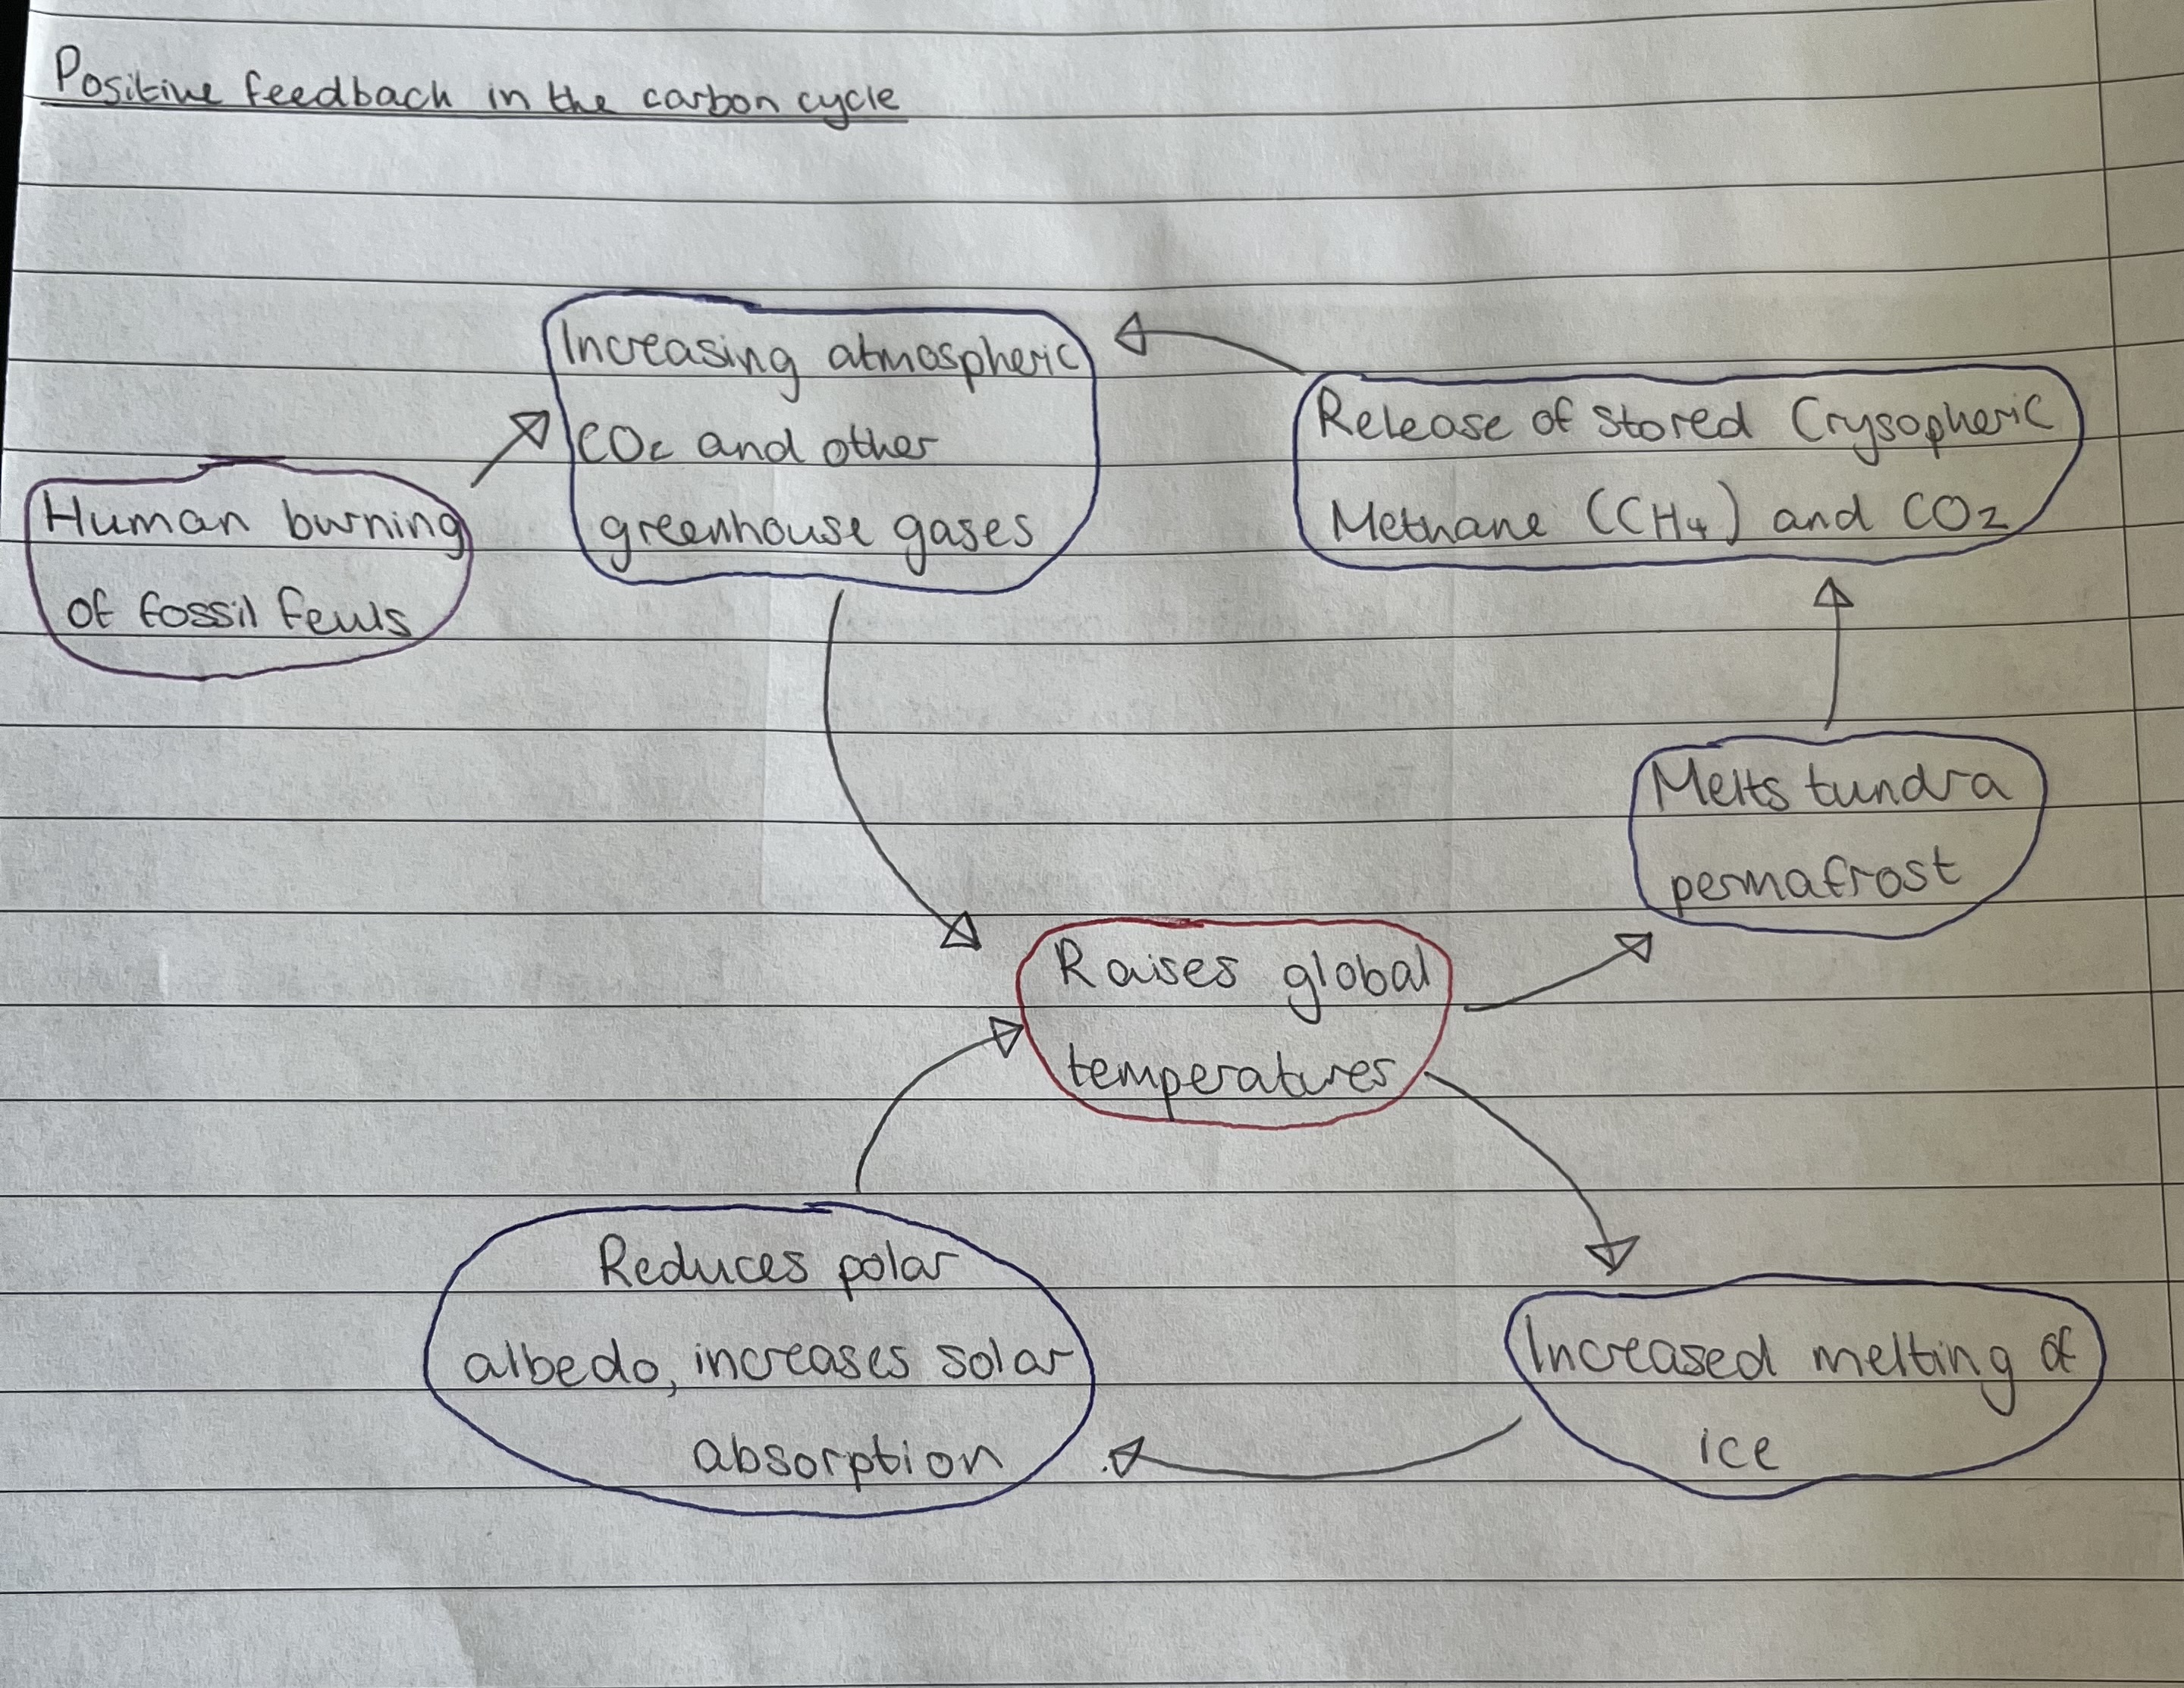 Positive feedback in the carbon cycle
Increasing atmospheric
CO2 and other
greenhouse gases
Release of stored Crysopheric
Methane (CH4) and CO2
Human burning
of fossil feuls
Melts tundra
permafrost
Raises global
temperatures
Reduces polar
albedo, increases solar
absorption
Increased melting of
ice